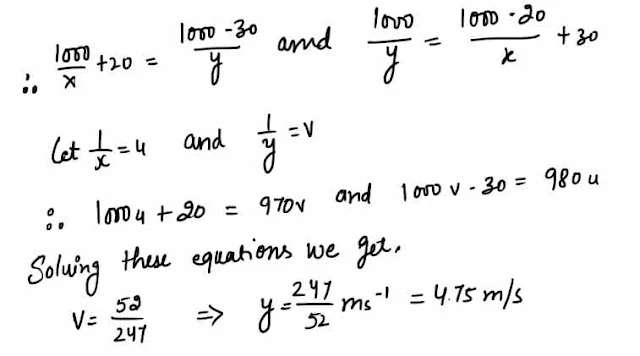 ∴ 1000/x + 20 = 1000 - 30/y and 1000/y = 1000 - 20/x + 30
Let 1/x = u and 1/y = v
∴ 1000u + 20 = 970v and 1000v - 30 = 980u
Solving these equations we get,
V = 52/247 ⇒ y = 247/52 ms⁻¹ = 4.75 m/s